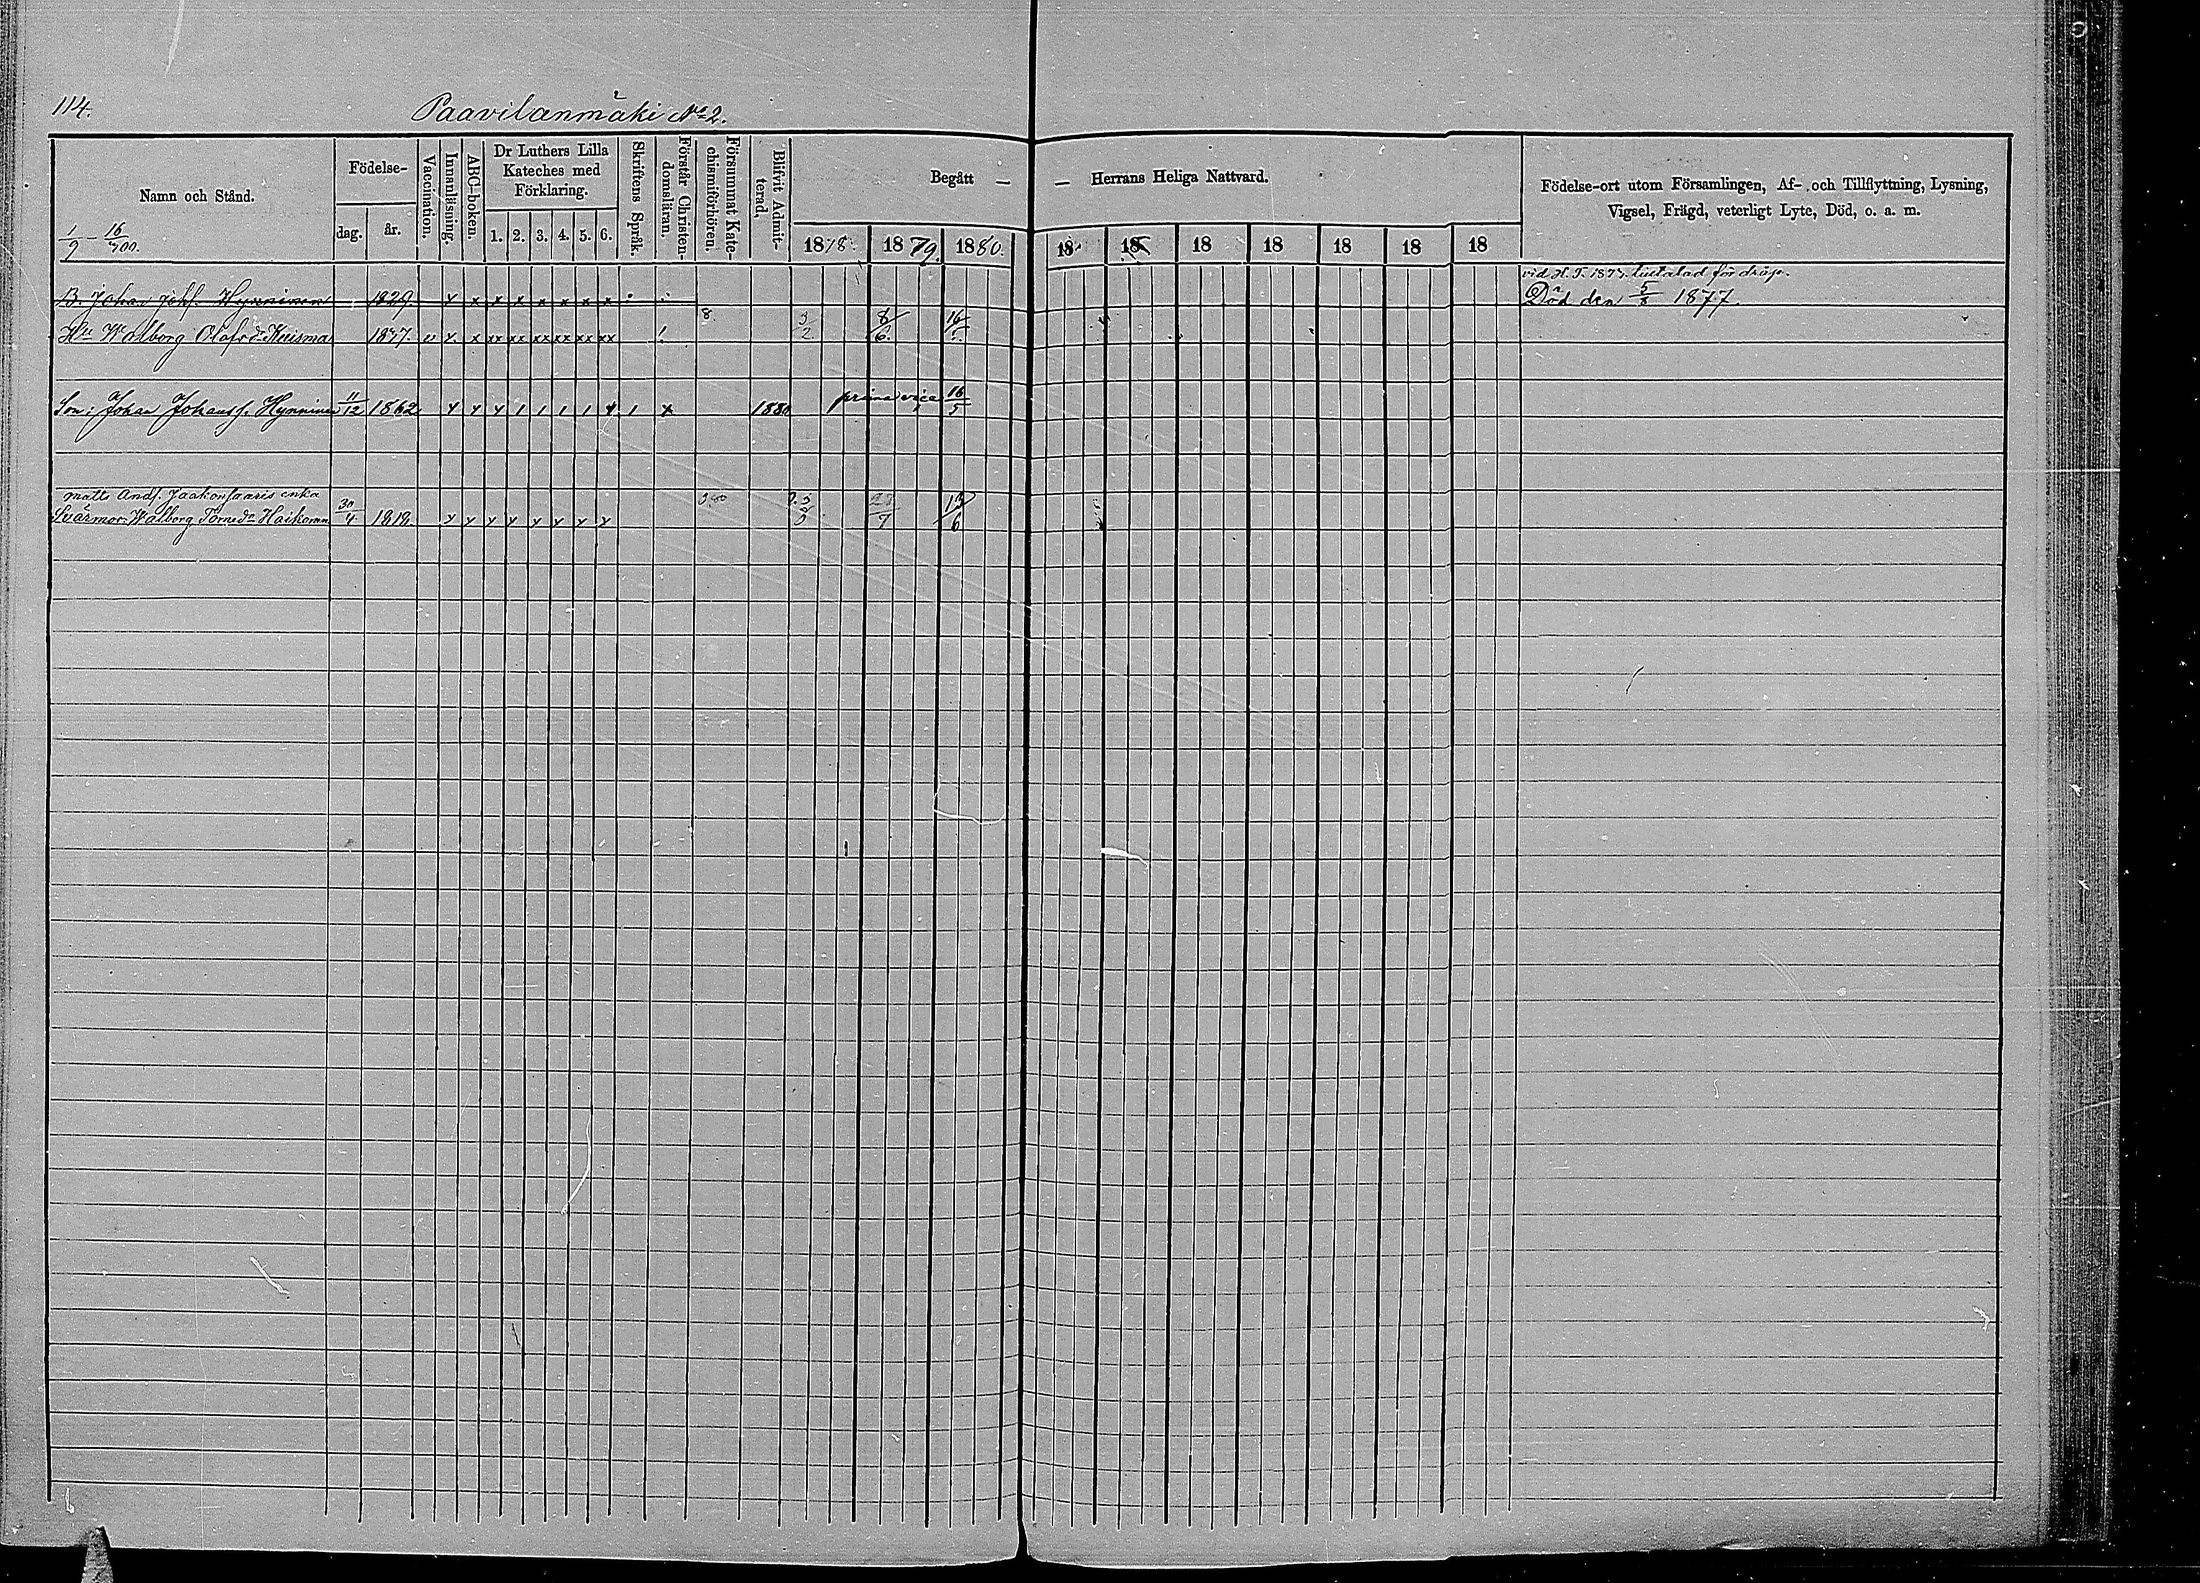 114.
Paavilanmäki No 2.
Namn och Stånd.
1/9 – 16/700.
Födelse-
dag.
år.
Vaccination.
Innanläsning.
ABC-boken.
Dr Luthers Lilla
Kateches med
Förklaring.
1. 2. 3. 4. 5. 6.
Skriftens Språk.
Förstår Christen-
domsläran.
Försummat Kate-
chismiförhören.
Blifvit Admit-
terad,
Begått — — Herrans Heliga Nattvard.
1878. 1879. 1880. 18 18 18 18 18 18 18
Födelse-ort utom Församlingen, Af- och Tillflyttning, Lysning,
Vigsel, Frägd, veterligt Lyte, Död, o. a. m.
B. Johan Johs. Hynninen 1829 x x x x x x x x
vid H. T. 1877. för dråp.
Död den 5/8 1877.
Hu Walborg Olofsdr Kuisma 1837. v x x xx xx xx xx xx xx ! 8. 3/2. 8/6. 16/5.
Son: Johan Johanss. Hynninen 11/12 1862 x x x 1 1 1 1 x 1 x 1880 prima vice 16/5
Matts Ands. Jaakonsaaris enka
Svärmor: Walborg Törnedr Haikonen 30/4 1819. x x x x x x x x 13/6